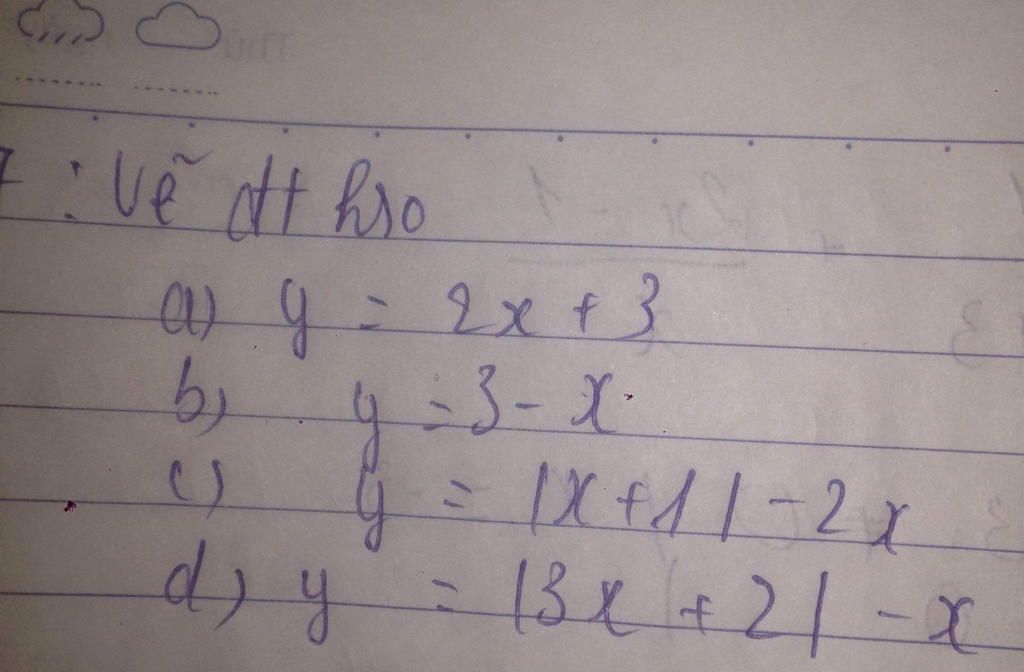 : Vẽ đt hso
a) y = 2x + 3
b) y = 3 - x
c) y = |x + 1| - 2x
d) y = |3x + 2| - x